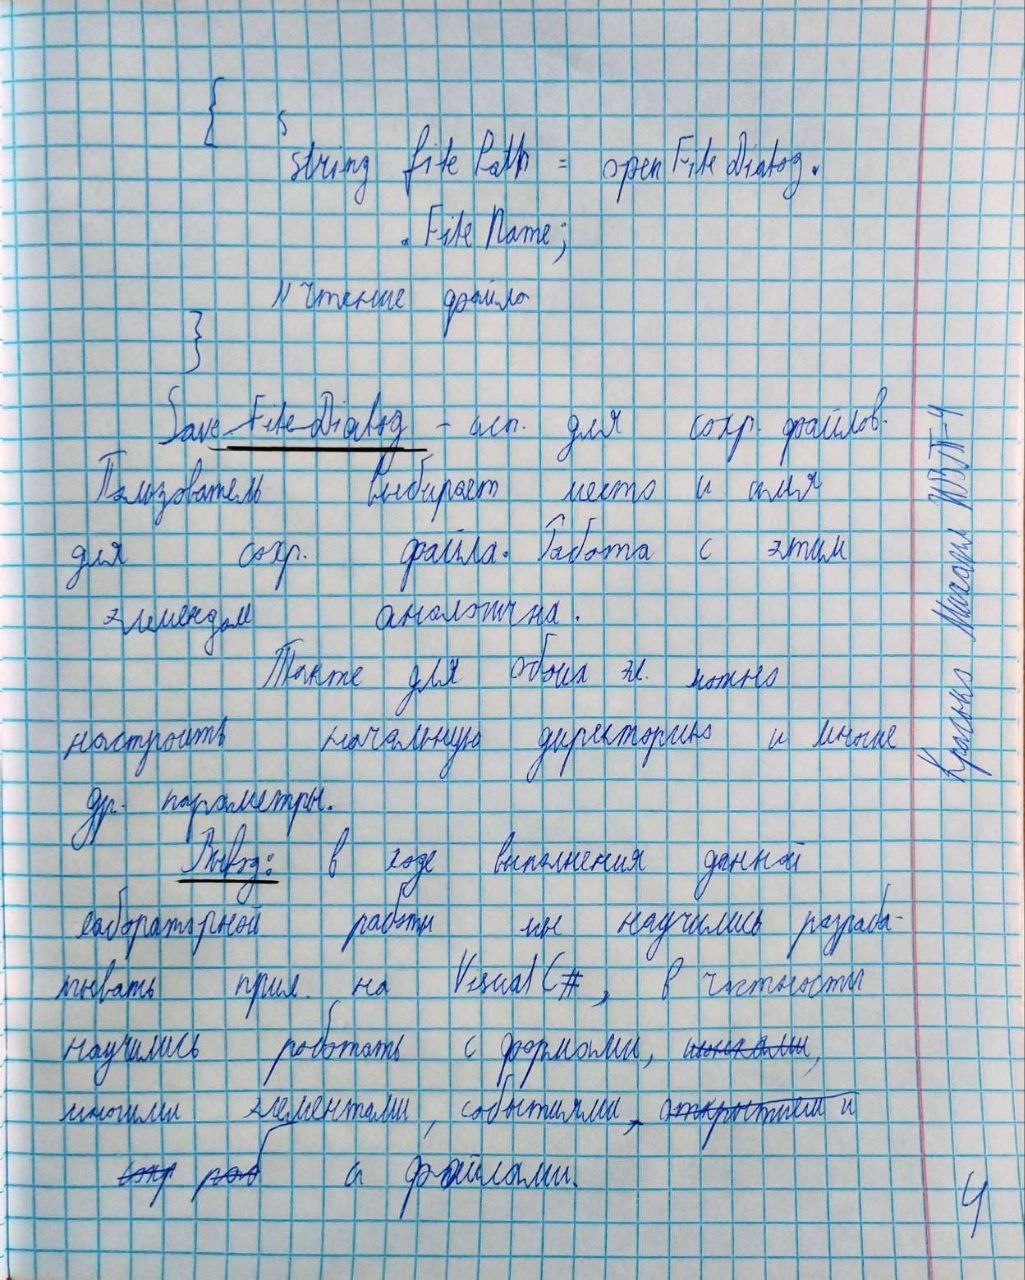 {
string filePath = openFileDialog.
.FileName;
// Чтение файла
}
SaveFileDialog - исп. для сохр. файлов.
Пользователь выбирает место и имя
для сохр. файла. Работа с этим
элементом аналогична.
Также для обоих эл. можно
настроить начальную директорию и многие
др. параметры.
Вывод: в ходе выполнения данной
лабораторной работы мы научились разраба-
тывать прил. на Visual C#, в частности
научились работать с формами,
многими элементами, событиями, открытием и
сохр раб и файлами.
Красько Михаил
4